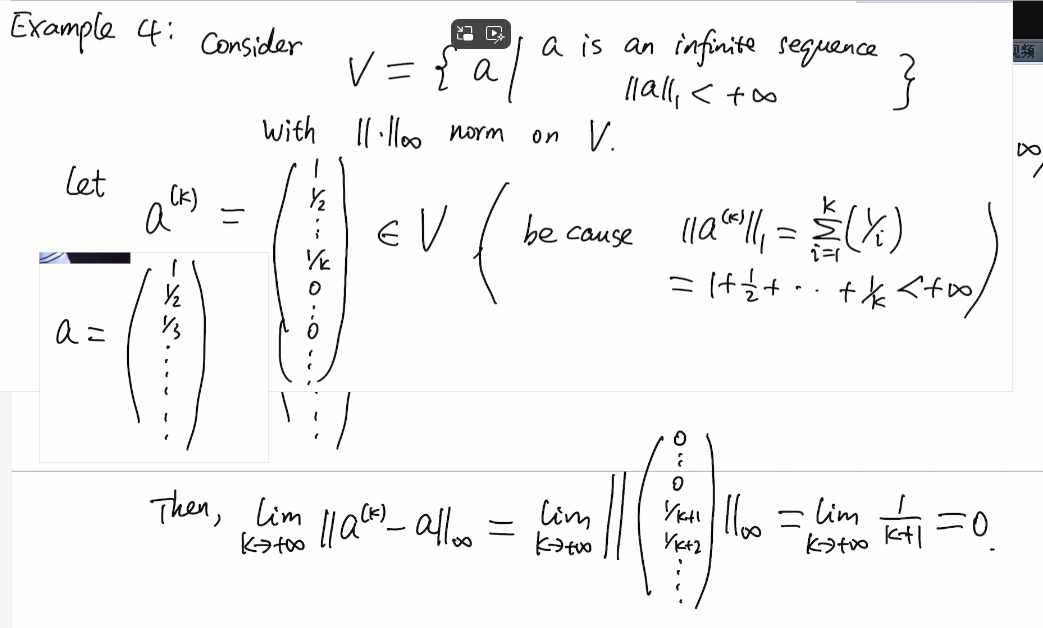 Example 4: Consider
V = { a | a is an infinite sequence
||a||₁ < +∞ }
with ||·||∞ norm on V.
∞
Let a^(k) = ( 1 1/2 ⋮ 1/k 0 ⋮ 0 ⋮ ) ∈ V ( because ||a^(k)||₁ = Σ_{i=1}^{k} (1/i)
= 1 + 1/2 + ·· + 1/k < +∞ )
a = ( 1 1/2 1/3 ⋮ )
Then, lim_{k→+∞} ||a^(k) - a||∞ = lim_{k→+∞} || ( 0 ⋮ 0 1/k+1 1/k+2 ⋮ ) ||∞ = lim_{k→+∞} 1/k+1 = 0.